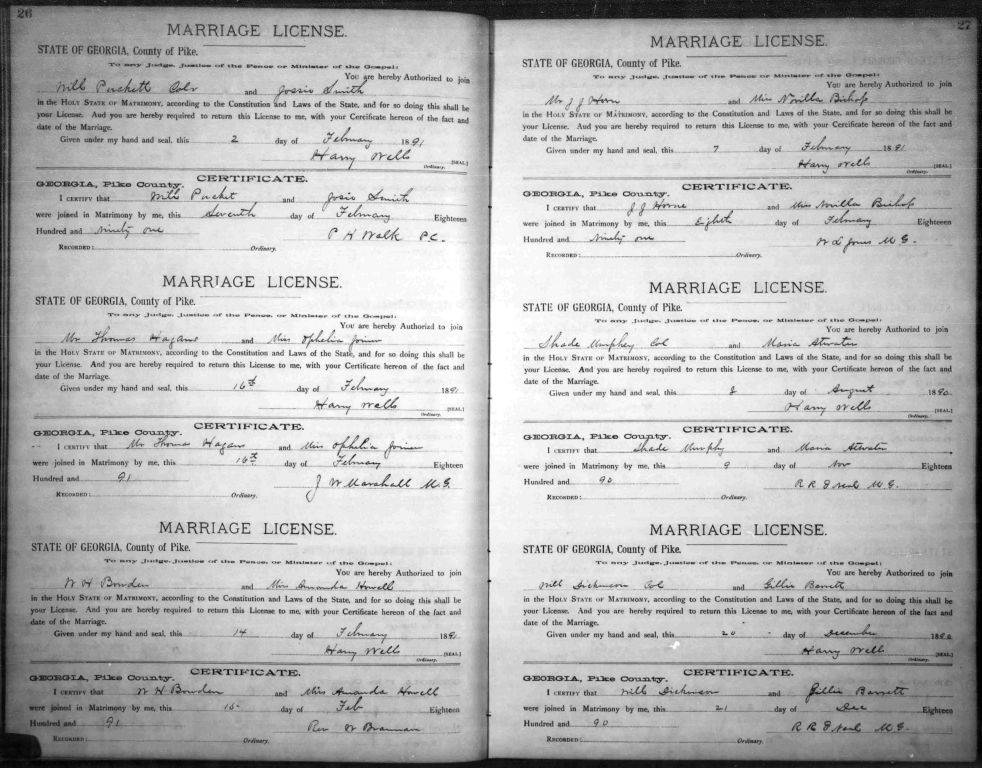 26
MARRIAGE LICENSE.
STATE OF GEORGIA, County of Pike.
To any Judge, Justice of the Peace or Minister of the Gospel:
You are hereby Authorized to join
Will Puckett Colr and Jossie Smith
in the HOLY STATE OF MATRIMONY, according to the Constitution and Laws of the State, and for so doing this shall be
your License. And you are hereby required to return this License to me, with your Certificate hereon of the fact and
date of the Marriage.
Given under my hand and seal, this 2 day of February 1891
Harry Wells [SEAL]
Ordinary.
CERTIFICATE.
GEORGIA, Pike County.
I CERTIFY that Will Pucket and Josie Smith
were joined in Matrimony by me, this Seventh day of February Eighteen
Hundred and Ninety one P H Walk P.C.
RECORDED: Ordinary.
MARRIAGE LICENSE.
STATE OF GEORGIA, County of Pike.
To any Judge, Justice of the Peace, or Minister of the Gospel:
You are hereby Authorized to join
Mr Thomas Hagans and Miss Ophelia Joiner
in the HOLY STATE OF MATRIMONY, according to the Constitution and Laws of the State, and for so doing this shall be
your License. And you are hereby required to return this License to me, with your Certificate hereon of the fact and
date of the Marriage.
Given under my hand and seal, this 16th day of February 1891
Harry Wells [SEAL]
Ordinary.
CERTIFICATE.
GEORGIA, Pike County.
I CERTIFY that Mr Thomas Hagan and Miss Ophelia Joiner
were joined in Matrimony by me, this 16th day of February Eighteen
Hundred and 91 J W Marshall M.G.
RECORDED: Ordinary.
MARRIAGE LICENSE.
STATE OF GEORGIA, County of Pike.
To any Judge, Justice of the Peace, or Minister of the Gospel:
You are hereby Authorized to join
W H Bowden and Miss Amanda Howell
in the HOLY STATE OF MATRIMONY, according to the Constitution and Laws of the State, and for so doing this shall be
your License. And you are hereby required to return this License to me, with your Certificate hereon of the fact and
date of the Marriage.
Given under my hand and seal, this 14 day of February 1891
Harry Wells [SEAL]
Ordinary.
CERTIFICATE.
GEORGIA, Pike County.
I CERTIFY that W H Bowden and Miss Amanda Howell
were joined in Matrimony by me, this 15 day of Feb Eighteen
Hundred and 91 Rev W Brannan
RECORDED: Ordinary.
27
MARRIAGE LICENSE.
STATE OF GEORGIA, County of Pike.
To any Judge, Justice of the Peace or Minister of the Gospel:
You are hereby Authorized to join
Mr J J Horn and Miss Novilla Bishop
in the HOLY STATE OF MATRIMONY, according to the Constitution and Laws of the State, and for so doing this shall be
your License. And you are hereby required to return this License to me, with your Certificate hereon of the fact and
date of the Marriage.
Given under my hand and seal, this 7 day of February 1891
Harry Wells [SEAL]
Ordinary.
CERTIFICATE.
GEORGIA, Pike County.
I CERTIFY that J J Horne and Miss Novilla Bishop
were joined in Matrimony by me, this Eighth day of February Eighteen
Hundred and Ninety one W L Jones M G.
RECORDED: Ordinary.
MARRIAGE LICENSE.
STATE OF GEORGIA, County of Pike.
To any Judge, Justice of the Peace, or Minister of the Gospel:
You are hereby Authorized to join
Shade Umphey Col and Maria Atwater
in the HOLY STATE OF MATRIMONY, according to the Constitution and Laws of the State, and for so doing this shall be
your License. And you are hereby required to return this License to me, with your Certificate hereon of the fact and
date of the Marriage.
Given under my hand and seal, this 8 day of August 1890
Harry Wells [SEAL]
Ordinary.
CERTIFICATE.
GEORGIA, Pike County.
I CERTIFY that Shade Murphy and Maria Atwater
were joined in Matrimony by me, this 9 day of Nov Eighteen
Hundred and 90 R R M.G.
RECORDED: Ordinary.
MARRIAGE LICENSE.
STATE OF GEORGIA, County of Pike.
To any Judge, Justice of the Peace, or Minister of the Gospel:
You are hereby Authorized to join
Will Dickinson Col and Gillie Barrett
in the HOLY STATE OF MATRIMONY, according to the Constitution and Laws of the State, and for so doing this shall be
your License. And you are hereby required to return this License to me, with your Certificate hereon of the fact and
date of the Marriage.
Given under my hand and seal, this 20 day of December 1890
Harry Wells [SEAL]
Ordinary.
CERTIFICATE.
GEORGIA, Pike County.
I CERTIFY that Will Dickinson and Gillie Barrett
were joined in Matrimony by me, this 21 day of Dec Eighteen
Hundred and 90 R R M.G.
RECORDED: Ordinary.